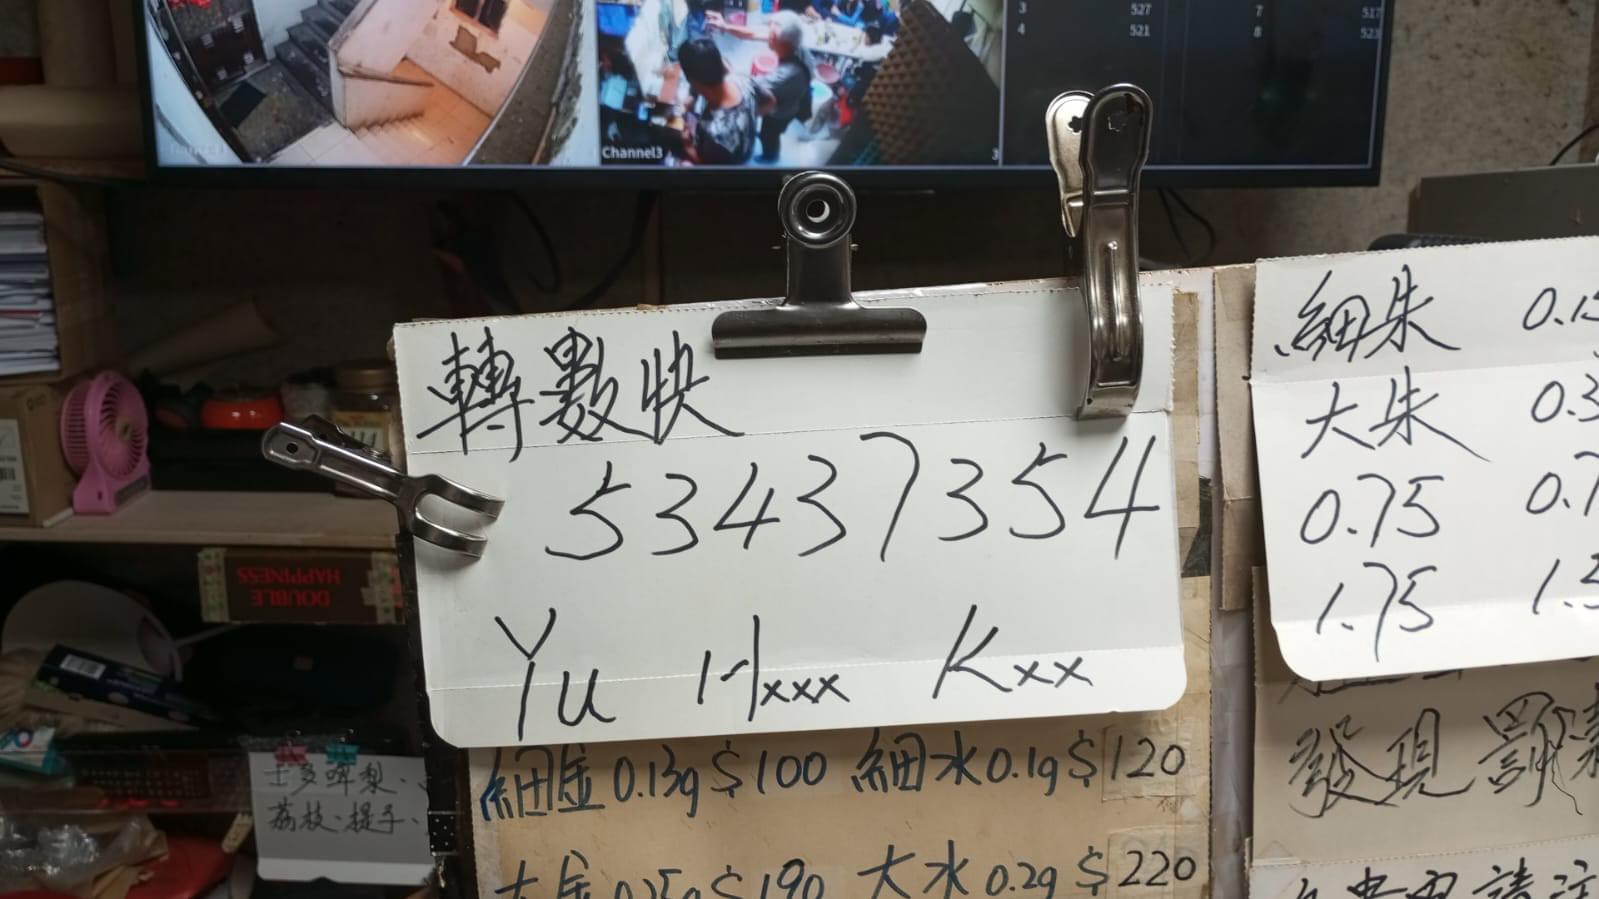 3 527 7 517
4 521 8 523
Channel3 3
轉數快
53437354
Yu Hxxx Kxx
細朱
大朱
0.75
1.75
DOUBLE HAPPINESS
細金 0.13g $100 細水 0.1g $120
大金 0.25g $190 大水 0.2g $220
士多啤梨、
荔枝、提子、
發現 罰